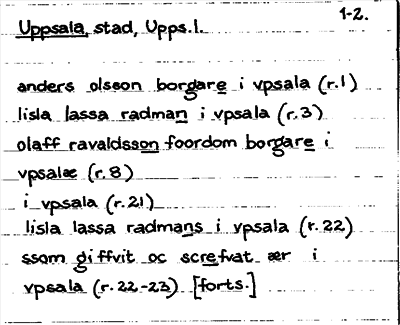 1-2.
Uppsala, stad, Upps.l.
anders olsson borgare i vpsala (r.1)
lisla lassa radman i vpsala (r.3)
olaff ravaldsson foordom borgare i
vpsalæ (r.8)
i vpsala (r.21)
lisla lassa radmans i vpsala (r.22)
ssom giffvit oc screfvat ær i
vpsala (r.22-23) [forts.]